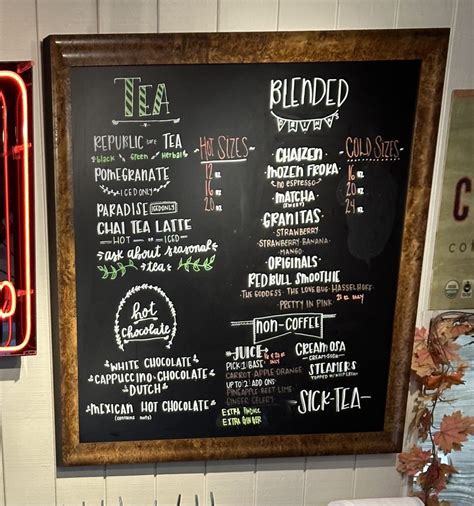 TEA
REPUBLIC OF TEA
black Green Herbal
POMEGRANATE
ICED ONLY
PARADISE ICED ONLY
CHAI TEA LATTE
HOT OR ICED
ask about seasonal
tea
HOT SIZES
12 oz.
16 oz.
20 oz.
hot
chocolate
WHITE CHOCOLATE
CAPPUCCINO-CHOCOLATE
DUTCH
MEXICAN HOT CHOCOLATE
(contains nuts)
BLENDED
DRINKS
CHAIZEN
MOZEN FROKA
no espresso
MATCHA
(sweet)
GRANITAS
STRAWBERRY
STRAWBERRY-BANANA
MANGO
ORIGINALS
RED BULL SMOOTHIE
THE GODDESS THE LOVE BUG HASSELHOFF
PRETTY IN PINK
COLD SIZES
16 oz.
20 oz.
24 oz.
NON-COFFEE
JUICE
PICK 1 BASE
CARROT APPLE ORANGE
UP TO 2 ADD ONS
PINEAPPLE BEET LIME
GINGER CELERY
EXTRA
EXTRA GINGER
CREAMOSA
CREAM-SODA
STEAMERS
TOPPED W/
SICK-TEA
C
CO